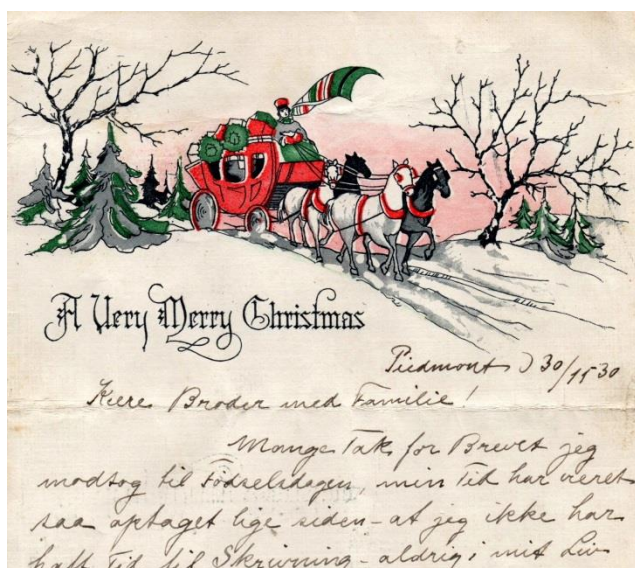 A Very Merry Christmas
Piedmont D 30/11 30
Kære Broder med Familie!
Mange Tak for Brevet jeg
modtog til Fødselsdagen, min Tid har været
saa optaget lige siden - at jeg ikke har
haft Tid til Skrivning - aldrig i mit Liv